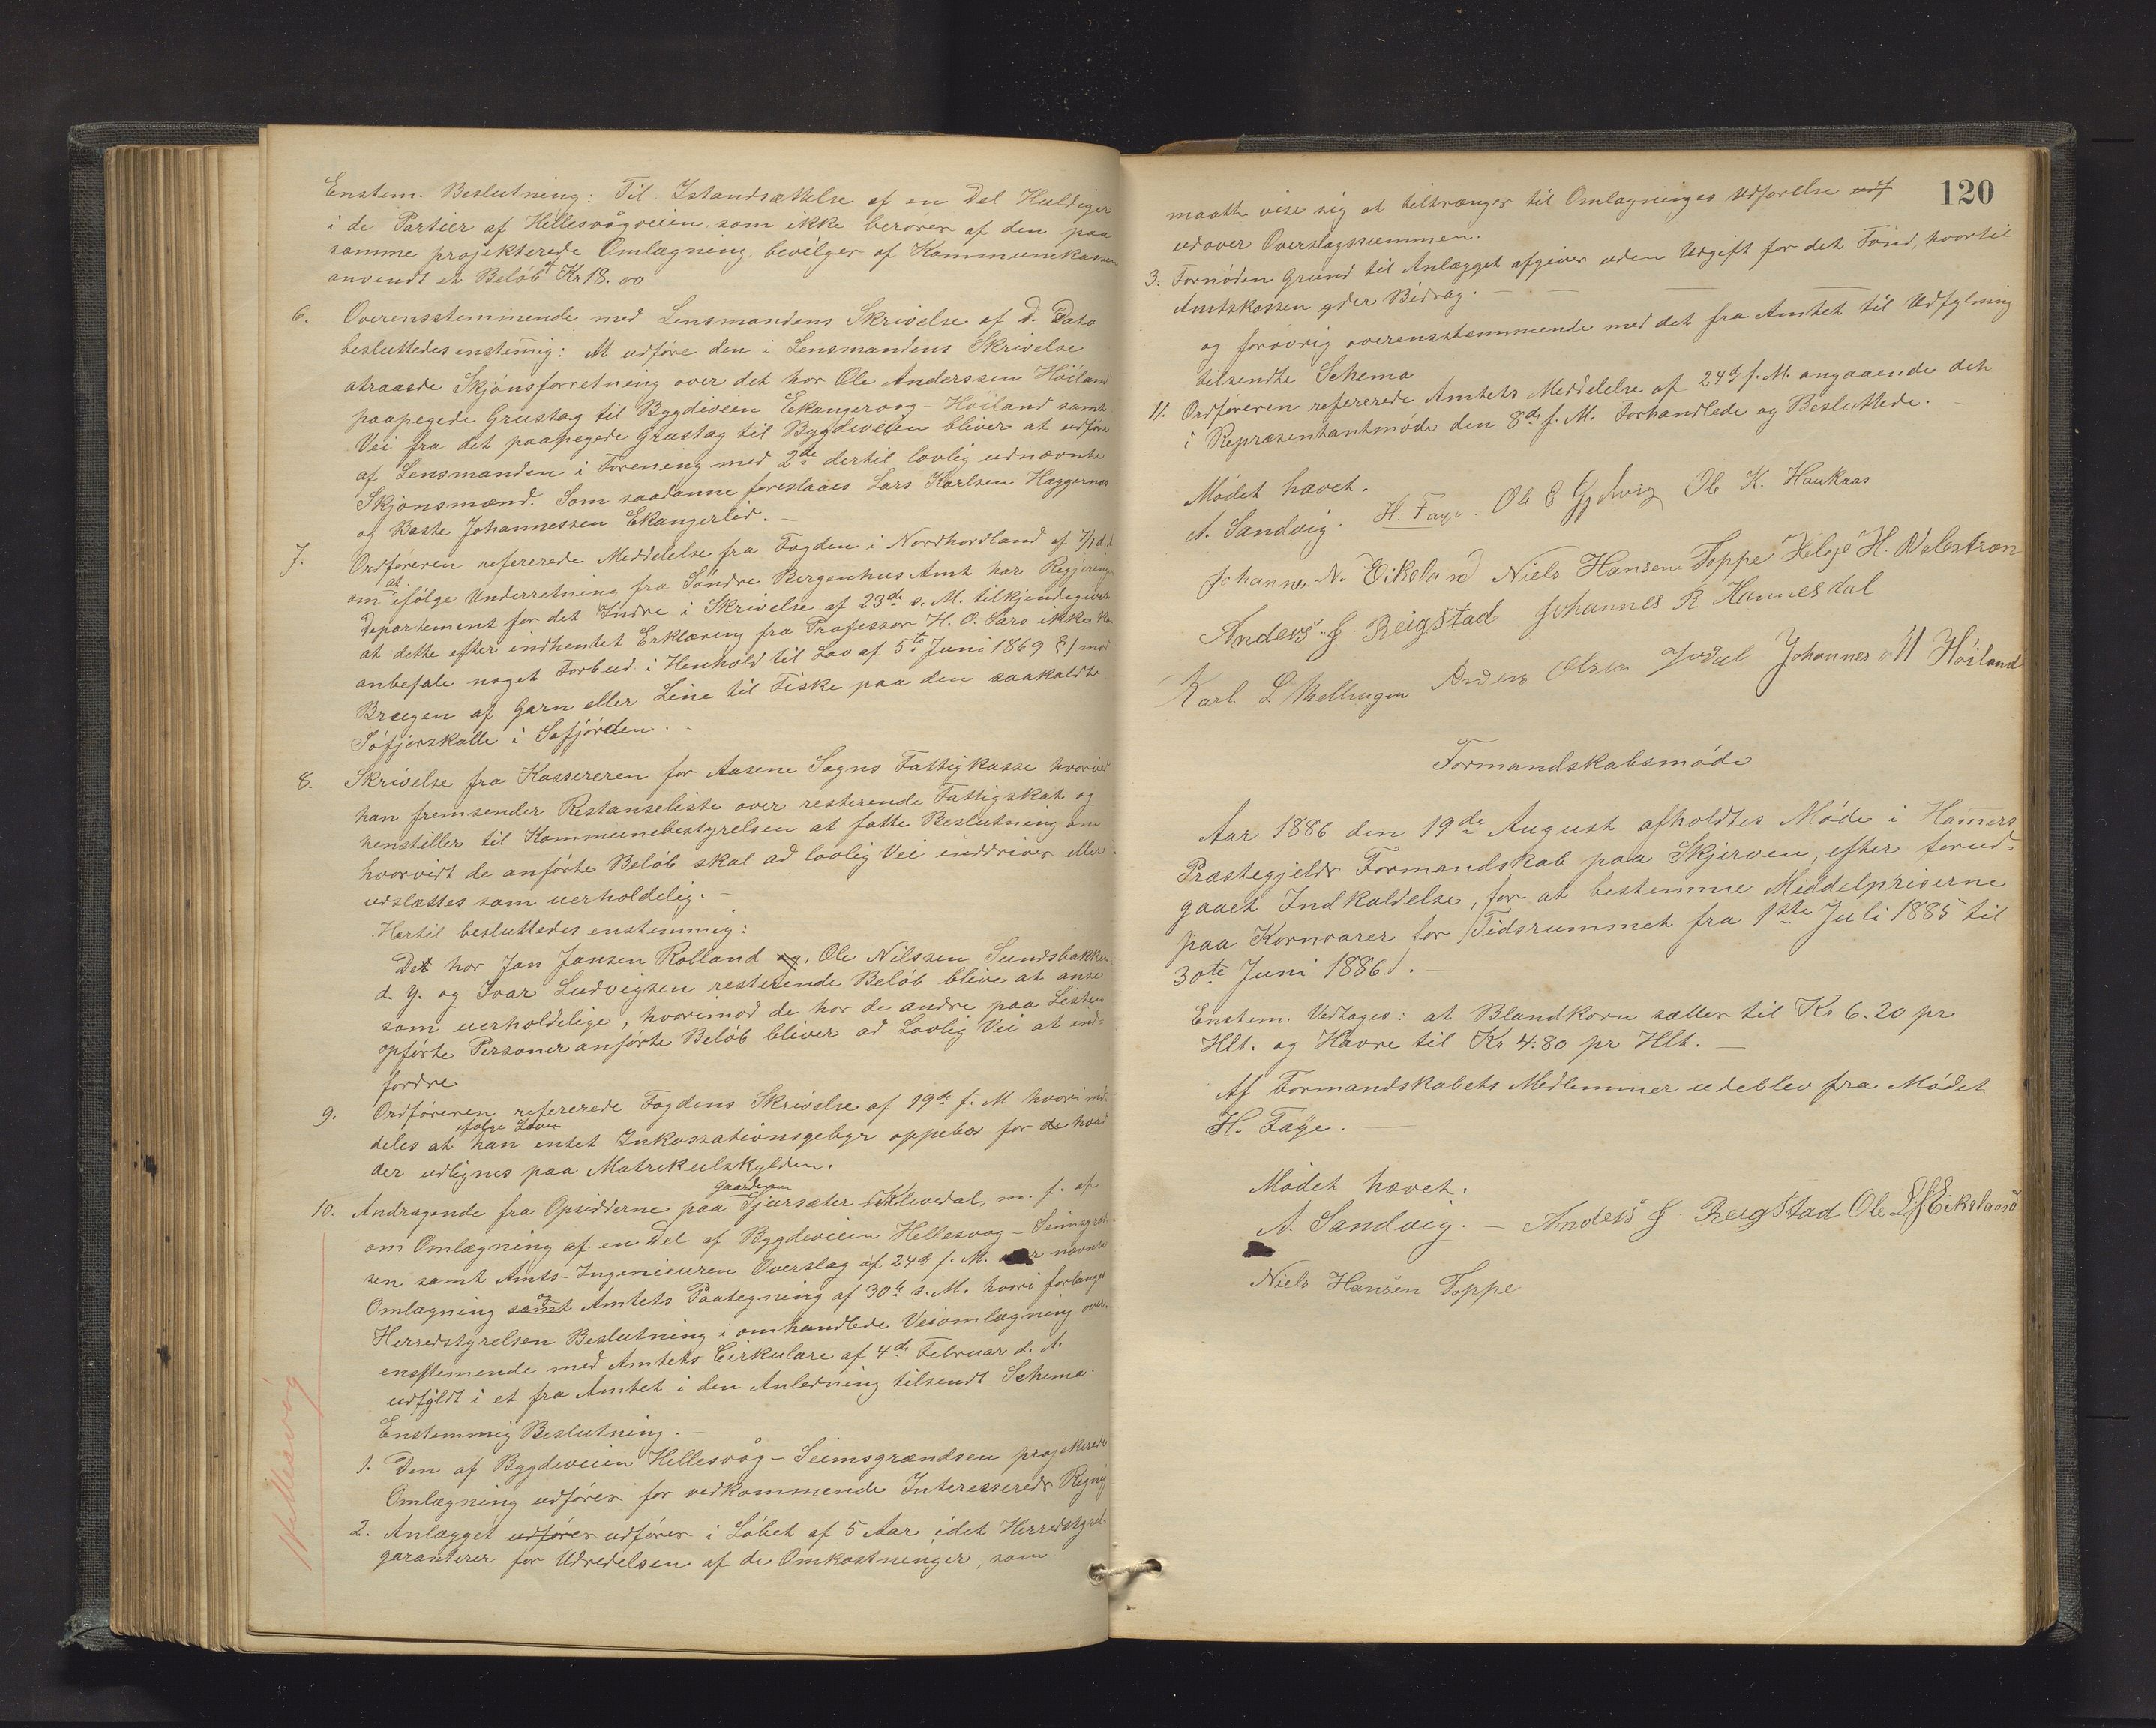 Enstem. Beslutning: Til Istandsættelse af en Del Huldiger
i de Partier af Hellesvågveien som ikke berøres af den paa
samme projekterede Omlægning, bevilges af Kommunekassen
anvendt et Beløb Kr 18.00
6. Overensstemmende med Lensmandens Skrivelse af D. Dato
besluttedes enstemig: At udføre den i Lensmandens Skrivelse
atraaede Skjønsforretning over det hos Ole Anderssen Höiland
paapegede Grustag til Bygdeveien Ekangervog - Höiland samt
Vei fra det paapegede Grustag til Bygdeveien bliver at udføre
af Lensmanden i Forening med 2de dertil lovlig udnævnte
Skjønsmænd. Som saadanne foreslaaes Lars Karlsen Haggernes
og Baste Johannessen Ekangerlid. -
7. Ordføreren refererede Meddelelse fra Fogden i Nordhordland af 7/1 d.
om at ifølge Underretning fra Søndre Bergenhus Amt har Regjerings
Departement for det Indre i Skrivelse af 23de s. M. tilkjendegivet
at dette efter indhentet Erklæring fra Professor H. O. Sars ikke kan
anbefale noget Forbud i Henhold til Lov af 5te Juni 1869 § 1 mod
Brugen af Garn eller Line til Fiske paa den saakaldte
Söfjorskalle i Söfjörden. -
8. Skrivelse fra Kassereren for Aasene Sogns Fattigkasse hvorved
han fremsender Restanseliste over resterende Fattigskat og
henstiller til Kommunebestyrelsen at fatte Beslutning om
hvorvidt de anførte Beløb skal ad lovlig Vei inddrives eller
udslættes som uerholdelig. -
Hertil besluttedes enstemmig:
Det hos Jan Jansen Rolland og, Ole Nilssen Sundsbakken
d. y. og Ivar Ludvigsen resterende Beløb blive at anse
som uerholdelige, hvorimod de hos de andre paa Listen
opførte Personer anførte Beløb bliver ad Lovlig Vei at ind-
fordre
9. Ordføreren refererede Fogdens Skrivelse af 19de f. M hvori med
ifølge Loven
deles at han intet Inkassationsgebyr oppebær for de hvad
der udlignes paa Matrikulskylden.
Gaardene
10. Andragende fra Opsidderne paa Gjersæter Klevedal, m. f. af
om Omlægning af en Del af Bygdeveien Hellesvog - Seimsgrænd
sen samt Amts-Ingeniøuren Overslag af 24de f. M. nævnte
Omlægning samt og Amtets Paategning af 30te s. M. hvori forlanges
Herredstyrelsen Beslutning i omhandlede Veiomlægning over-
ensstemende med Amtets Cirkulære af 4de Februar d. A.
udfyldt i et fra Amtet i den Anledning tilsendt Schema.
Enstemmig Beslutning. -
1. Den af Bygdeveien Hellesvåg - Seimsgrændsen projekterede
Omlægning udføres for vedkommende Interesserede Regning
2. Anlægget udføres udføres i Løbet af 5 Aar idet Herredstyrel.
garanterer for Udredelsen af de Omkostninger, som
Hellesvåg
120
maatte vise sig at tiltrænges til Omlagninges Udførelse udf
udover Overslagssummen.
3. Fornøden Grund til Anlægget afgives uden Udgift for det Fond, hvortil
Amtskassen yder Bidrag. -
og forøvrig overensstemmende med det fra Amtet til Udfylning
tilsendte Schema
11. Ordføreren refererede Amtets Meddelelse af 24de f. M. angaaende det
i Repræsentantmøde den 8de f. M. Forhandlede og Besluttede. -
Mødet hævet.
A. Sandvig. H. Faye. Ole E Ole K. Haukaas
Johannes N. Eikeland Niels Hansen Toppe Helge H. Valestran
Anders J. Beigstad Johannes R Hannesdal
Karl L Mellingen Anders Olsen Johannes M Höiland
Formandskabsmøde
Aar 1886 den 19de August afholdtes Møde i Hamers
Præstegjelds Formandskab paa Skjerven, efter forud-
gaaet Indkaldelse, for at bestemme Middelpriserne
paa Kornvarer for Tidsrummet fra 1ste Juli 1885 til
30te Juni 1886. -
Enstem. Vedtages: at Blandkorn sættes til Kr 6.20 pr
Hlt. og Havre til Kr 4.80 pr Hlt. -
Af Formandskabets Medlemmer udeblev fra Mødet
H. Faye. -
Mødet hævet.
A. Sandvig. - Anders J. Beigstad Ole Eikeland
Niels Hansen Toppe